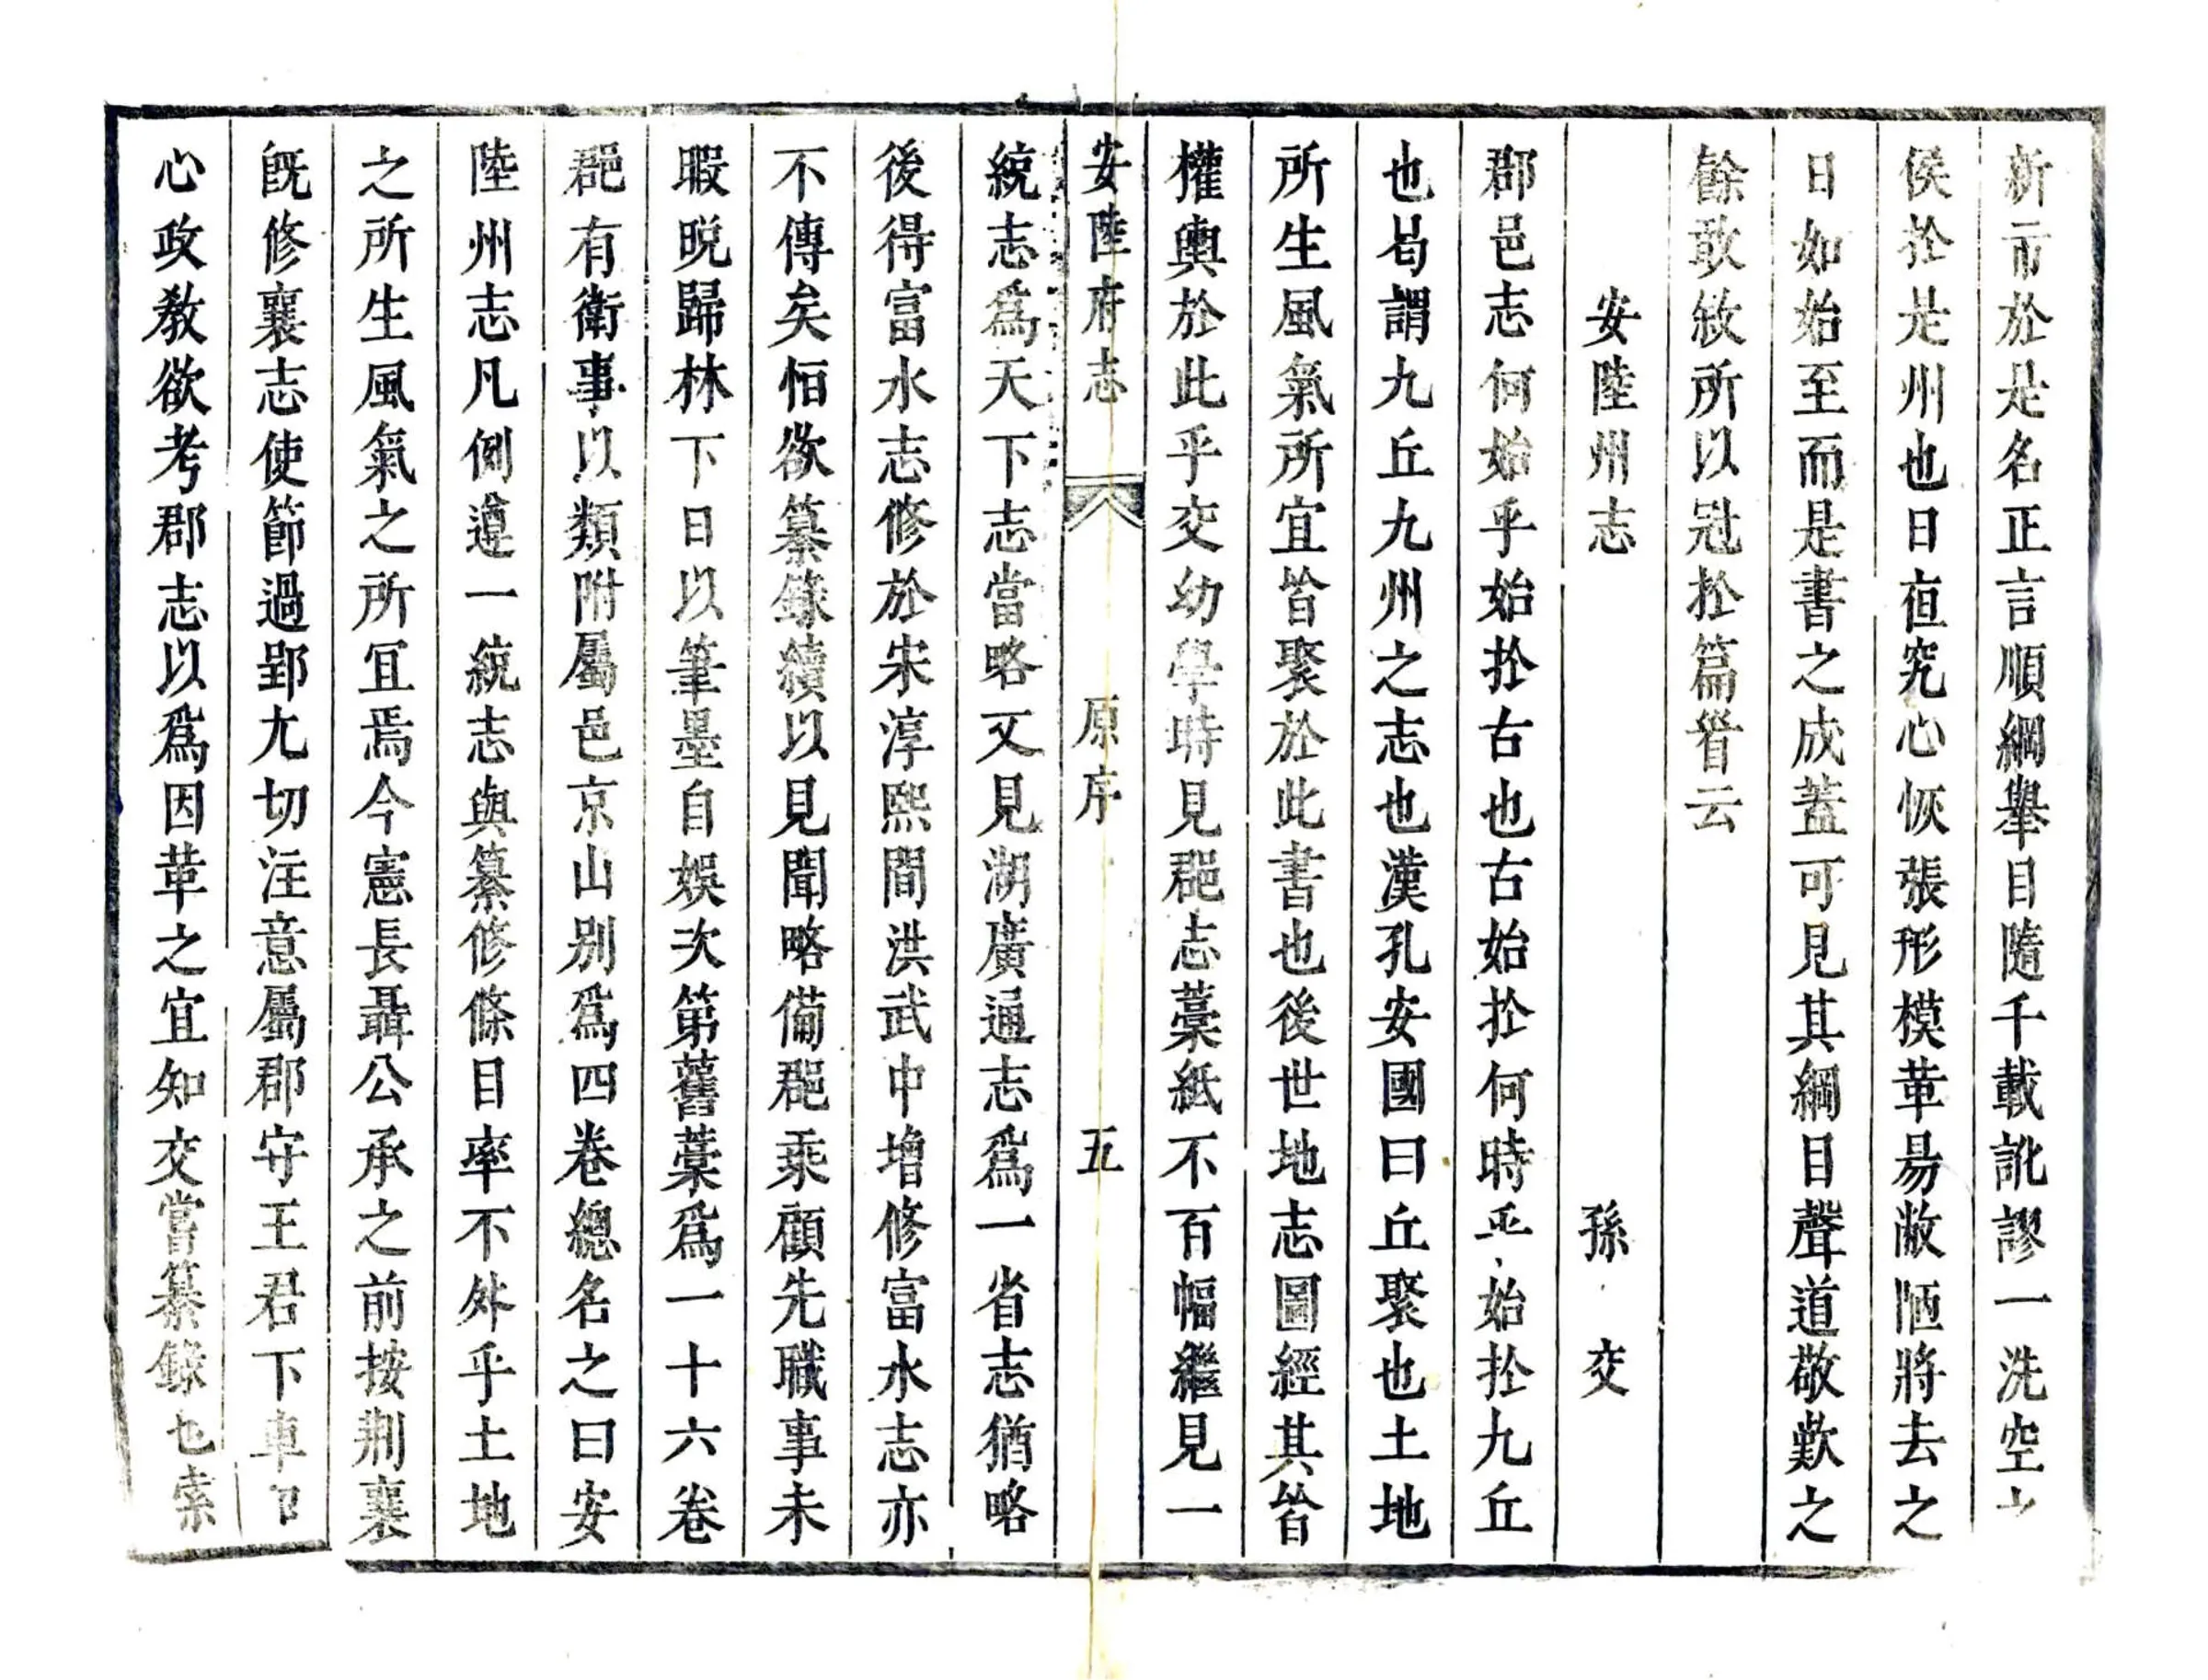 新市於是名正言順綱舉目隨千載訛謬一洗空之
侯扵是州也日亱究心恢張形模革昜敝陋將去之
日如始至而是書之成蓋可見其綱目聲道敬歎之
餘敢敘所以冠扵篇眷云
安陸州志 孫 交
郡邑志何始乎始扵古也古始扵何時乎始扵九丘
也曷謂九丘九州之志也漢孔安國曰丘聚也土地
所生風氣所宜皆聚於此書也後世地志圖經其皆
權輿於此乎交幼學時見郡志藁紙不百幅繼見一
安陸府志 原序 五
統志爲天下志當略又見湖廣通志爲一省志猶略
後得富水志修於宋淳熙間洪武中增修富水志亦
不傳矣怕欲纂錄續以見聞略備郡乘顧先職事未
暇晩歸林下日以筆墨自娛次第舊藁爲一十六卷
郡有衛事以類附屬邑京山別爲四卷總名之曰安
陸州志凡例遵一統志與纂修條目率不外乎土地
之所生風氣之所冝焉今憲長聶公承之前按荆襄
旣修襄志使節過郢尢切注意屬郡守王君下車卽
心政教欲考郡志以爲因革之宜知交嘗纂錄也索